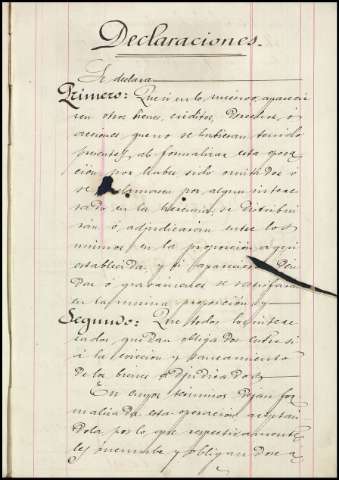 Declaraciones.
Se declara
Primero: Que si en lo sucesivo aparecie
ren otros bienes, créditos, Derechos, ó
acciones, que no se hubieran tenido
presentes, al formalizar esta opera
ción por haber sido omitidos ó
se reclamaren por algun intere
sado en la herencia, se distribui
rán ó, adjudicarán entre los
mismos en la proporción aqui
establecida, y si aparecieren deu
das ó gravámenes se satisfarán
en la misma proporción, y
Segundo: Que todos los intere
sados quedan obligados entre si
á la evicción y saneamiento
de los bienes adjudicados
En cuyos términos dejan for
malizada esta operación aceptan
dola por lo que respectivamente
les incumbe y obligandose á